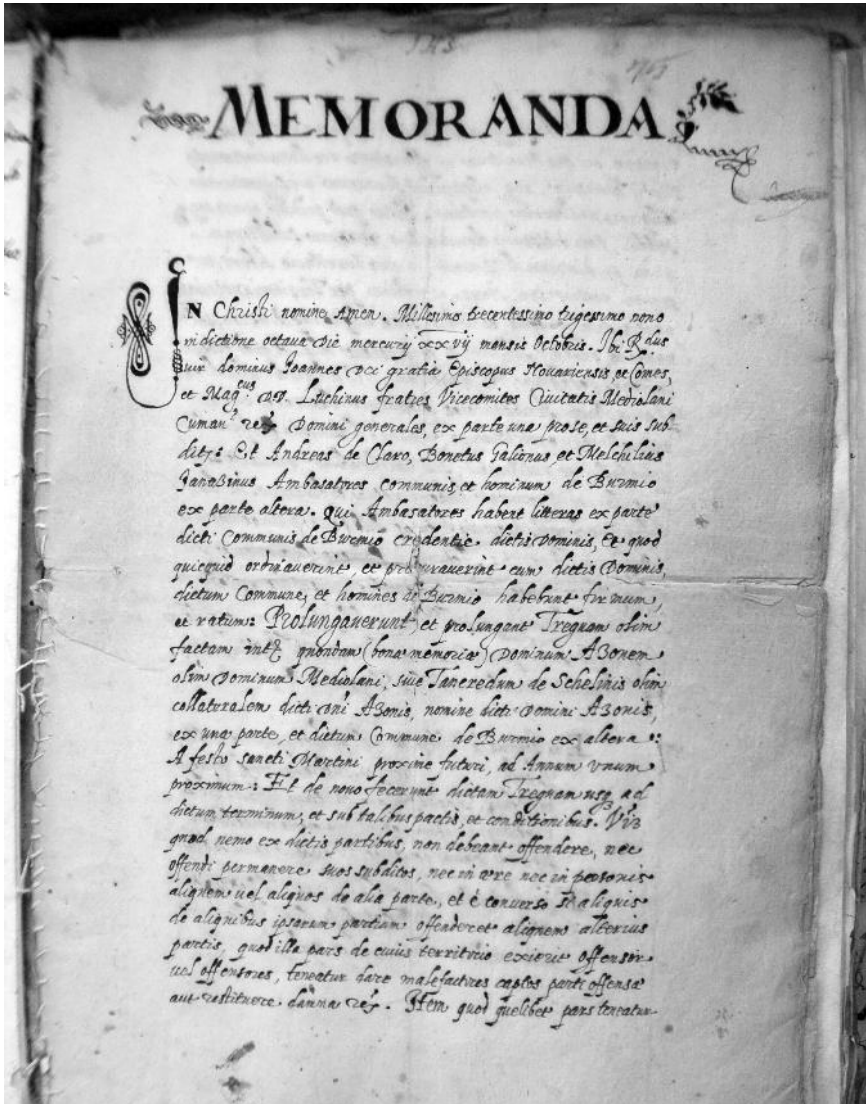 IHS
MEMORANDA
IN Christi nomine Amen. Millesimo trecentessimo trigessimo nono
indictione octava die mercurij xxvij mensis Octobris. Ibi R.dus
vir dominus Joannes Dei gratia Episcopus Novariensis, et Comes,
et Mag.cus DD. Luchinus fratres Vicecomites Civitatis Mediolani
Cuman' Domini generales, ex parte una prose, et suis sub-
ditis: Et Andreas de Claro, Bonetus Galionus, et Melchilius
Ambasatores communis, et hominum de Burmio
ex parte altera. Qui Ambasatores habent litteras ex parte
dicti Communis de Burmio credentie dictis Dominis, Et quod
quicquid ordinaverint, et procuraverint cum dictis Dominis,
dictum Commune, et homines de Burmio habebunt firmum,
et ratum: Prolungaverunt, et prolungant Treguam olim
factam quondam (bonæ memoriæ) Dominum Azonem
olim Dominum Mediolani, sive Taneredum de Schelinis olim
collateralem dicti Dni Azonis, nomine dicti Domini Azonis,
ex una parte, et dictum Commune de Burmio ex altera:
A festo sancti Martini proxime futuri, ad Annum unum
proximum: Et de novo fecerunt dictam Treguam usq3 ad
dictum terminum, et sub talibus pactis, et conditionibus. Viz
quod nemo ex dictis partibus, non debeant offendere, nec
offendi permanere suos subditos, nec in ære nec in personis
aliquem vel aliquos de alia parte, et è converso si aliquis
de aliquibus ipsarum partium offenderet aliquem alterius
partis, quod illa pars de cuius territorio exierit offensor
vel offensores, teneatur dare malefactores captos parti offensæ
aut restituere damna. Item quod quelibet pars teneatur